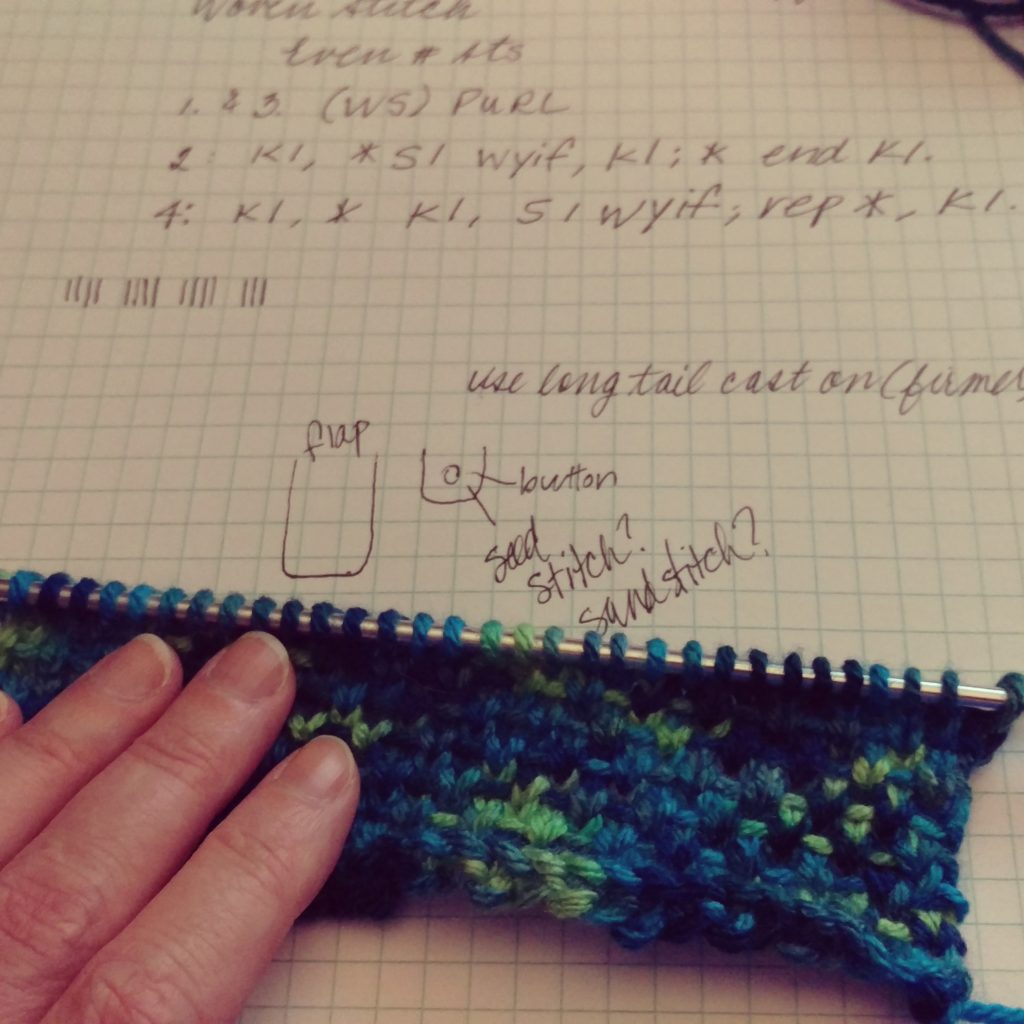 Woven Stitch
Even # sts
1. & 3. (WS) PURL
2: K1, *S1 wyif, K1; * end K1.
4: K1, * K1, S1 wyif; rep *, K1.
use long tail cast on (firmes
flap
button
seed
stitch?
sand stitch?